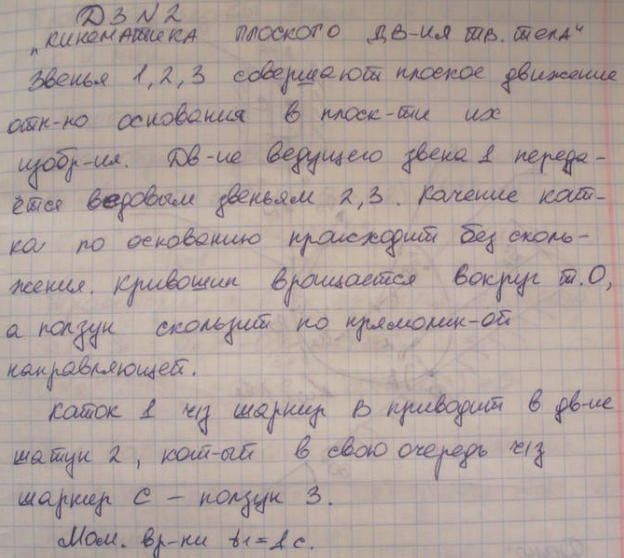 ДЗ №2
„КИНЕМАТИКА ПЛОСКОГО ДВ-ИЯ ТВ. ТЕЛА"
Звенья 1, 2, 3 совершают плоское движение
отн-но основания в плоск-ти их
изобр-ия. Дв-ие ведущего звена 1 переда-
ётся ведовым звеньям 2, 3. Качение кат-
ка по основанию происходит без сколь-
жения. Кривошип вращается вокруг т. О,
а ползун скользит по прямолин-ой
направляющей.
Каток 1 ч/з шарнир В приводит в дв-ие
шатун 2, кот-ый в свою очередь ч/з
шарнир С – ползун 3.
Мом. вр-ни t₁ = 1 с.